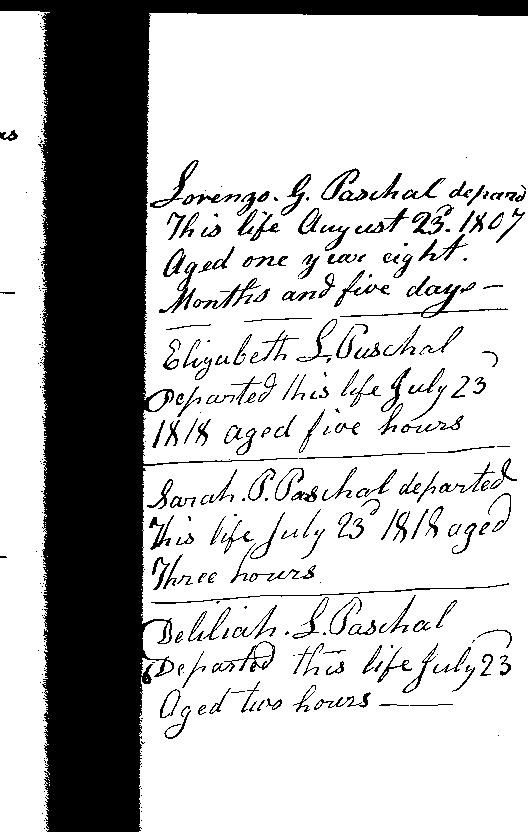 as
Lorenzo. G. Paschal depard
This life August 23d. 1807
Aged one year eight.
Months and five days —
Elizabeth L. Paschal
Departed this life July 23
1818 aged five hours
Sarah. P. Paschal departed
This life July 23d 1818 aged
Three hours
Deliliah. L. Paschal
Departed this life July 23
Aged two hours —